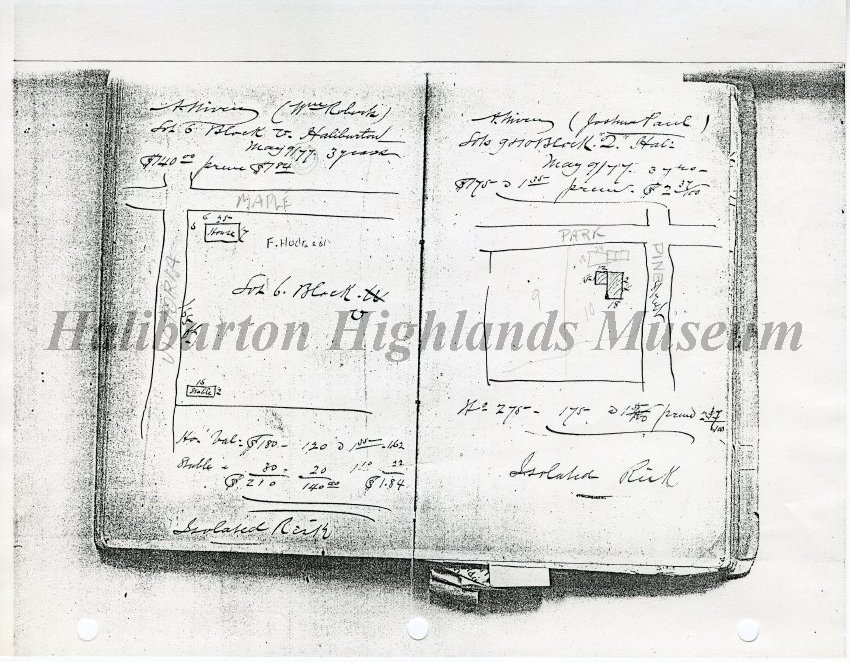 A. Niven (Wm Roberk)
Lot 6 Block V. Haliburton
May 9/77. 3 years
$140 00 prem $1 84
MAPLE
6 25
6 House 7
F. Hudson
VICTORIA
Lot 6. Block W
V
16
Stable 2
Ho. Val: $180 - 120 @ 1 35 - 1.62
Stable " 30 - 20 1 10 22
$210 140 00 $1.84
Isolated Risk
A. Niven (Joshua Paul)
Lots 9 & 10 Block "Q." Hal:
May 9/77. 3 yrs -
$175 @ 1 35 prem. $2 37/100
PARK
PINE
9
10
18
Ho 275 - 175 @ 1 35/100 prem 2 37/100
Isolated Risk
Haliburton Highlands Museum